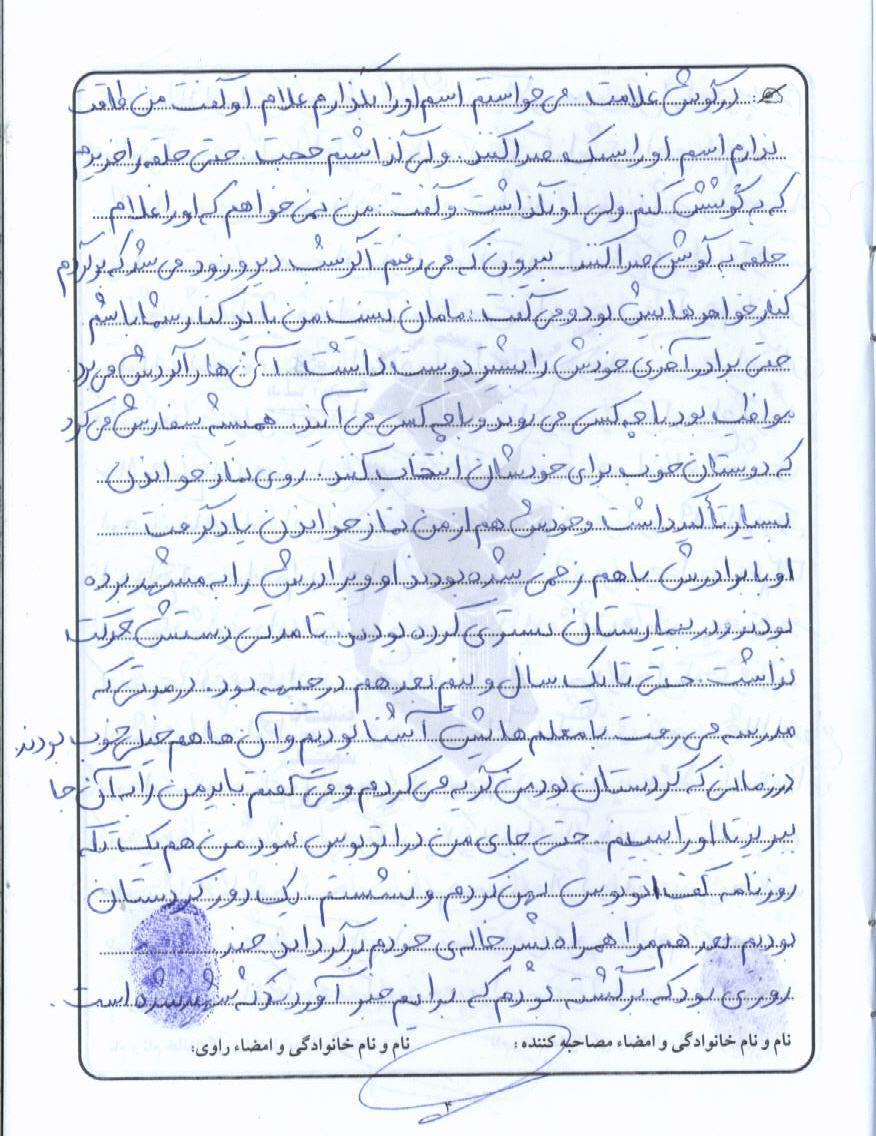 در گوش غلامت می خواستم اسم او را بگذارم غلام او گفت من طاقت
ندارم اسم او را سبک صدا کنند. ولی گذاشتم حجت. حتی حلقه را خریدم
که به گوشش کنم ولی او نگذاشت و گفت: من نمی خواهم که او را غلام
حلقه به گوش صدا کنند بیرون که می رفتم اگر شب دیر و زود می شد که برگردم
کنار خواهرهایش بود و می گفت: مامان نیست من باید کنار شما باشم
حتی برادر آخری خودش را بیشتر دوست داشت آن ها را گردش می برد
مواظب بود با چه کسی می روند و با چه کسی می آیند. همیشه سفارش می کرد
که دوستان خوب برای خودشان انتخاب کنند. روی نماز خواندن
بسیار تأکید داشت و خودش هم از من نماز خواندن یاد گرفت
او با برادرش با هم زخمی شده بودند او و برادرش را به مشهد برده
بودند و در بیمارستان بستری کرده بودند تا مدتی دستش حرکت
نداشت. حتی تا یک سال و نیم بعد هم در جبهه بود. در مدتی که
مدرسه می رفت با معلم هایش آشنا بودیم و آن ها هم خیلی خوب بودند
در زمانی که کردستان بود من گریه می کردم و می گفتم باید من را به آن جا
ببرید تا او را ببینم. حتی جای من در اتوبوس نبود من هم یک تکه
روزنامه کف اتوبوس پهن کردم و نشستم یک روز کردستان
بودیم بعد هم مرا همراه پسر خاله ی خودم برگرداند چند
روزی بود که برگشته بودم که برایم خبر آوردند که شهید شده است.
نام و نام خانوادگی و امضاء مصاحبه کننده: نام و نام خانوادگی و امضاء راوی:
۴